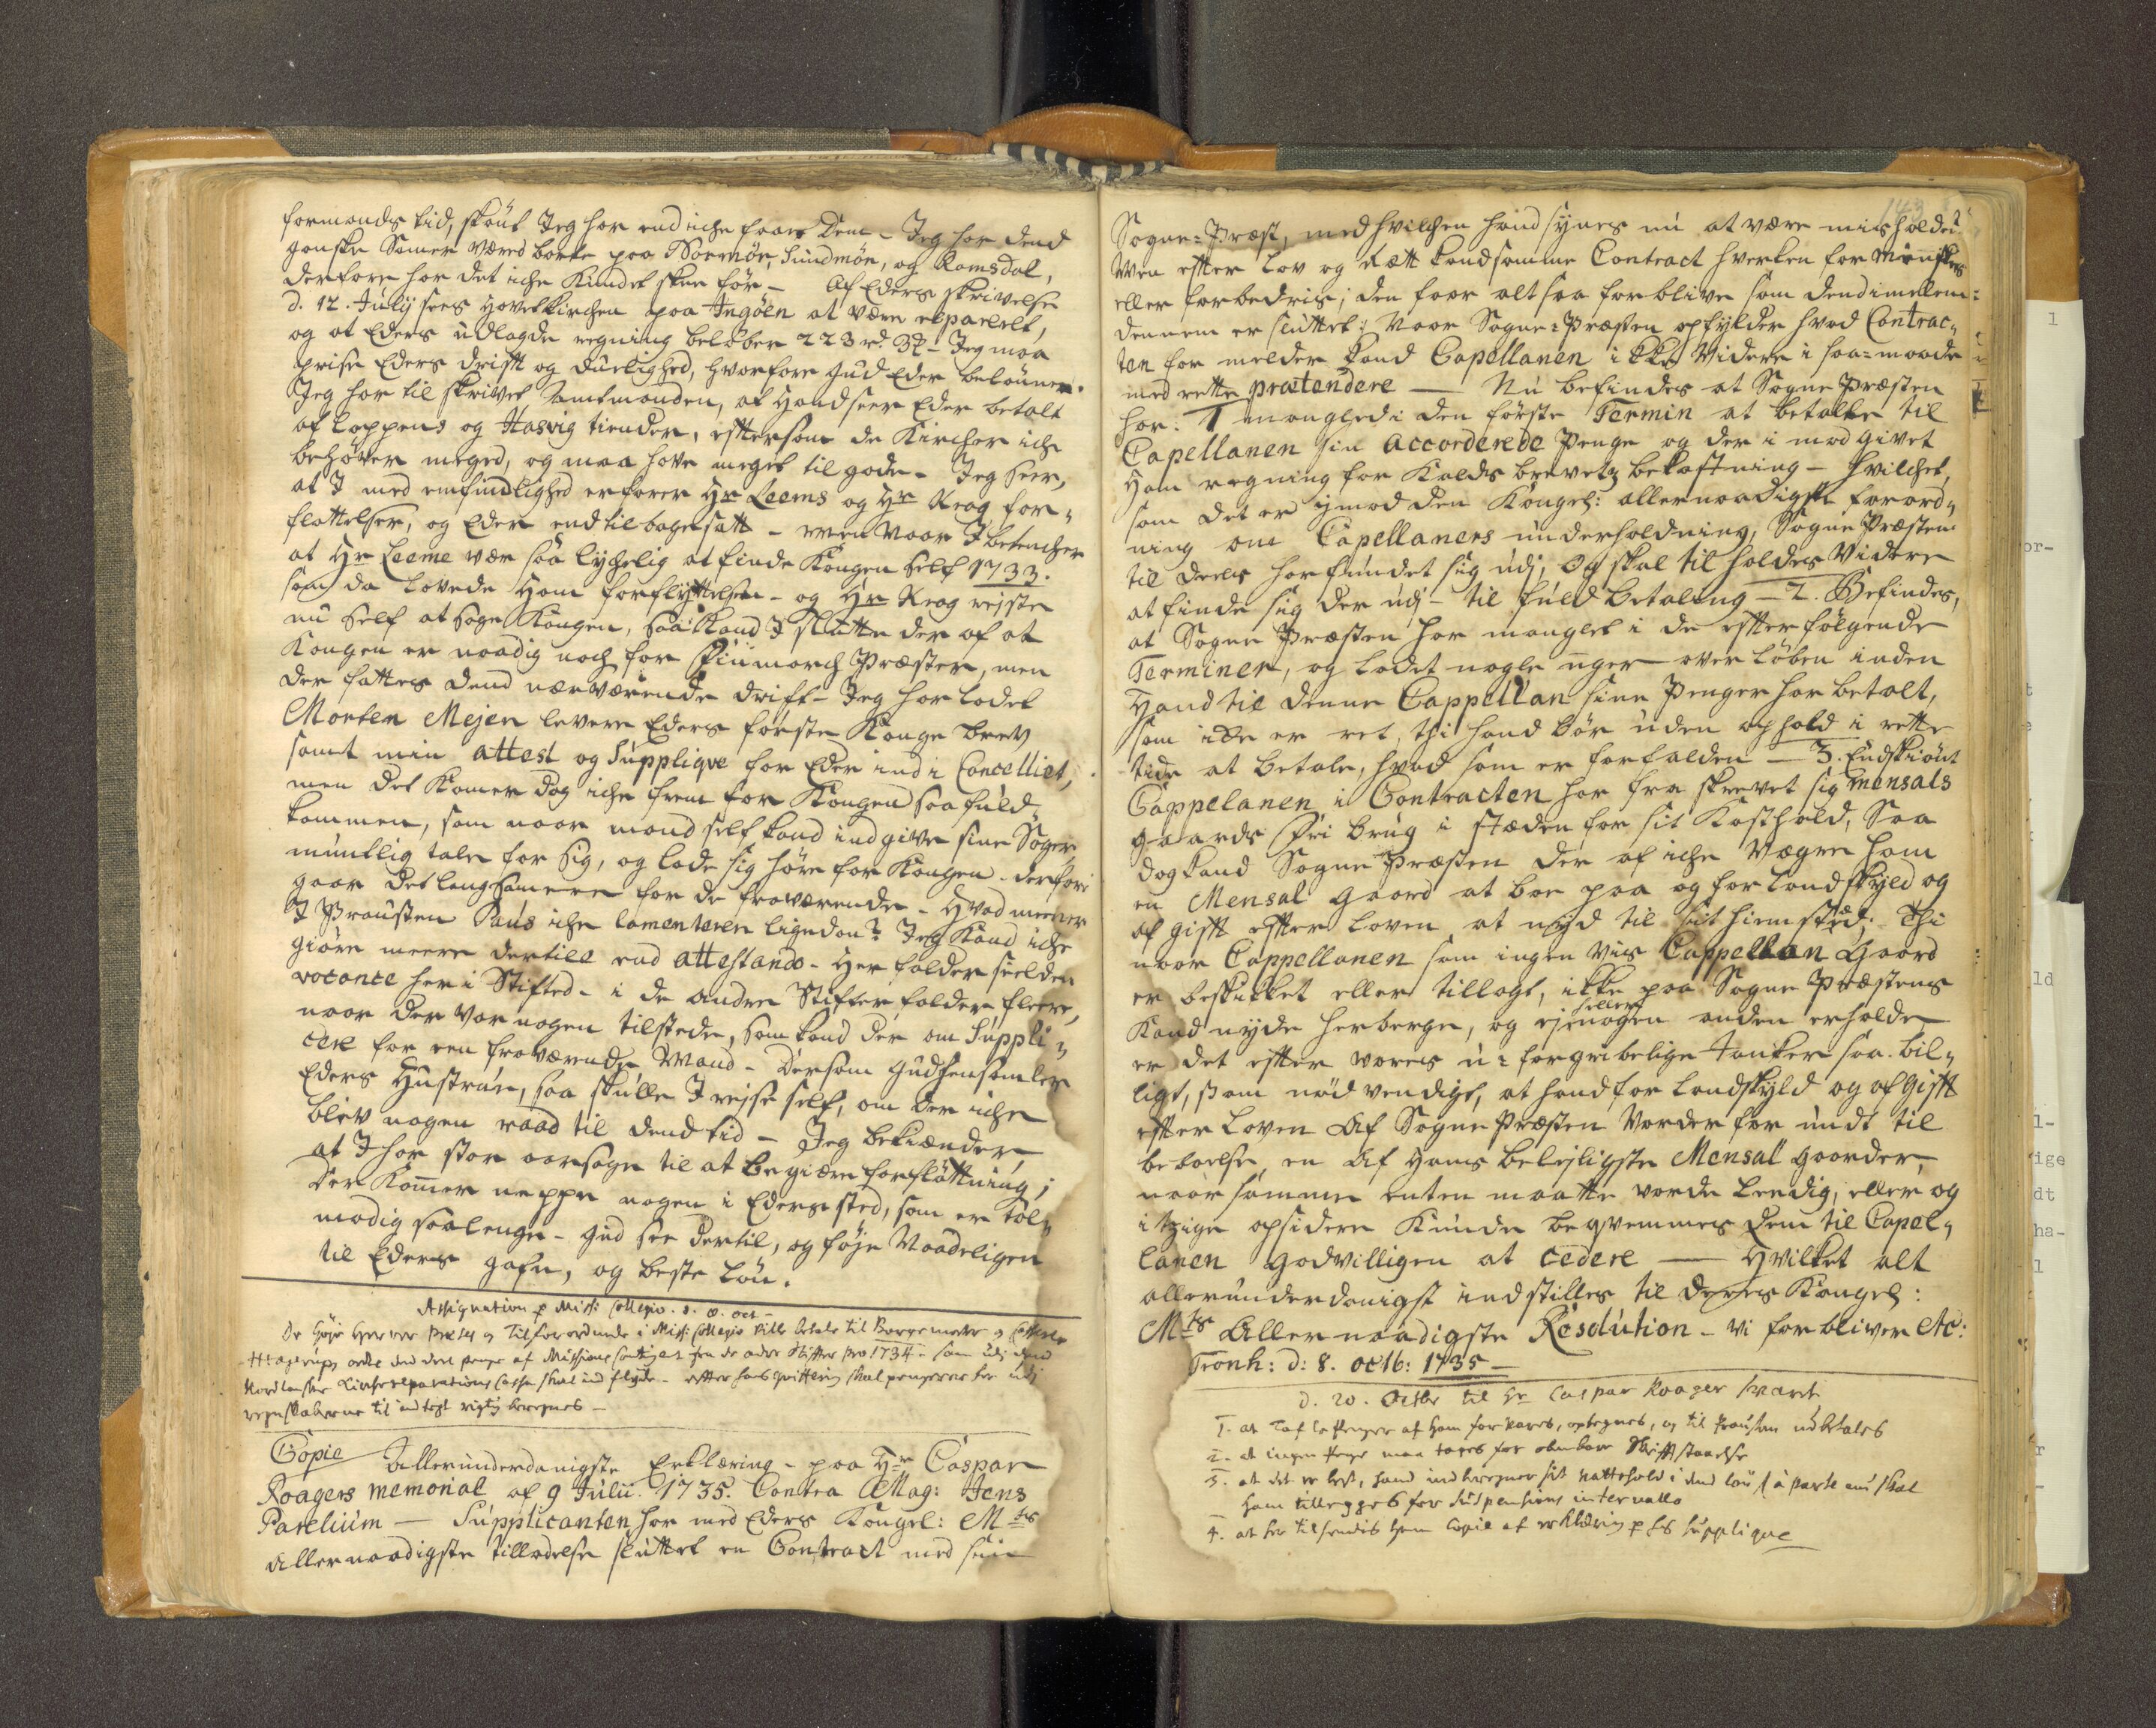 formands tid, skönt Jeg har end iche faaet Dem - Jeg har dend
ganske Somer væred borte paa Normör, Sundmör, og Romsdal,
derfore har det iche kundet skee för - Af Eders skrivelse
d. 12. Julij sees Hovetkirchen paa Ingöen at være reparert,
og at Eders udlagde regning beløber 223 rd - Jeg maa
prise Eders drifft og duelighed, hvorfore Gud Eder belönner.
Jeg har til skrevet Amtmanden, at Hand seer Eder betalt
af Loppens og Hasvig tiender, efttersom de Kircher iche
behøver meged, og maa have meget til gode - Jeg seer,
at I med emfindlighed erfarer Hr Leems og Hr Krog for-
flöttelser, og Eder end tilbagesatt - men naar I betencher
at Hr Leeme var saa lychelig at finde Kongen self 1733.
som da lovede Ham forflyttelsen - og Hr Krog rejste
nu self at søge Kongen, saa kand I slutte der af at
Kongen er naadig noch for Finmarch Præster, men
der fattes dend nærværende drifft - Jeg har ladet
Morten Mejer levere Eders første Konge brev
samt min attest og Supplique for Eder ind i Concelliet,
men det Komer dog iche frem for Kongen saa fuld
kommen, som naar mand self kand indgive sine Sager
muntlig tale for sig, og lade sig høre for Kongen. derfore
gaar det langsommere for de fraværende - Hvad meener
I Prousten Paus iche lamenterer ligedan? Jeg kand iche
giöre meere dertill end attestando - Her falder seelden
vocance her i Stifted - i de andre Stifter falder fleere,
naar der var nogen tilstede, som kand der om Suppli-
cere for een fraværende Mand - Dersom Gud hensamler
Eders Hustrue, saa skulle I rejse self, om der iche
blev nogen raad til dend tid - Jeg bekiænder,
at I har stor aarsage til at begiære forflöttning;
der Kommer neppe nogen i Eders sted, som er tol-
modig saalenge - Gud see dertil, og føje Naadeligen
til Eders gafn, og beste Lön.
Assignation p Miss: Collegio. d. 8. oct -
De Høje Herrer Præses og Tilforordnede i Miss: Collegio ville betale til Borgemester
Hagerups ordre dend deel penge af Missions fra de andre Stiffter pro 1734 - som udi dend
Nordlanske Kirche reparations Cassa skal ind flyde - efter hans qvittering skal pengerne her udi
regnskaberne til indtegt rigtig beregnes -
Copie Allerunderdanigste Erklæring - paa Hr Caspar
Roagers memorial af 9 Julii 1735. Contra Mag: Jens
Parelium - Supplicanten har med Eders Kongel: Mts
Allernaadigste Tilladelse sluttet en Contract med sin
143
Sogne-Præst, med hvilchen hand synes nu at være misholdet
Men efter Lov og Rætt kand samme Contract hverken for
eller forbedris; den faar alt saa forblive som dend imellem
dennem er sluttet: Naar Sogne-Præsten opfylder hvad Contrac-
ten for melder kand Capellanen ikke videre i saa-maade
med rette prætendere - Nu befindes at Sogne Præsten
har: 1 manglet i den förste Termin at betalle til
Capellanen sin accorderede Penge og der i mod givet
Ham regning for Kalds brevets bekostning - hvilchet,
som det er ijmod den Kongel: allernaadigste forord-
ning om Capellaners underholdning, Sogne Præsten
til deels har fundet sig udj, Og skal til holdes videre
at finde sig der udj - til fuld betaling - 2. Befindes,
at Sogne Præsten har manglet i de efterfølgende
Terminer, og ladet nogle uger over löben inden
Hand til denne Cappellan sine Penger har betalt,
som icke er ret, thi hand bör uden ophold i rette
tide at betale, hvad som er forfalden - 3. Endskiönt
Cappelanen i Contracten har fra skrevet sig mensals
gaards fri brug i stæden for sit Kosthold, Saa
dog kand Sogne Præsten der af iche vægre ham
en Mensal Gaard at boe paa og for Landskyld og
afgifft effter Loven at nyd til sit hiemsted; Thi
naar Cappellanen som ingen vis Cappellan Gaard
er beskikket eller tillagt, ikke paa Sogne Præstens
Kand nyde herberge, og ej heller nogen anden erholde
er det effter vores u-forgribelige tanker saa bil-
ligt, som nödvendigt, at hand for Landskyld og afgifft
effter Loven Af Sogne Præsten vorder for undt til
beboelse en Af Hans belejligste Mensal gaarder,
naar samme enten maatte vorde Leedig, eller og
itzige opsiddere kunde beqvemmes dem til Capel-
lanen godvilligen at cedere - Hvilket alt
allerunderdanigst indstilles til Deres Kongel:
Mts Allernaadigste Resolution - vi forbliver etc:
Tronh: d: 8. octb: 1735 -
d. 20. octbr til Hr Caspar Roager svaret
1. at Taf af Ham forvares, optegnes, og til Prousten udbetales
2. at ingen Penge maa tages for obenbare Skrifft staaelse
3. at det er best, hand indberegner sit nattehold i dend lön à parte nu skal
ham tillegges for Suspensions intervallo
4. at her tilsendes ham Copie af erklæring p hs supplique